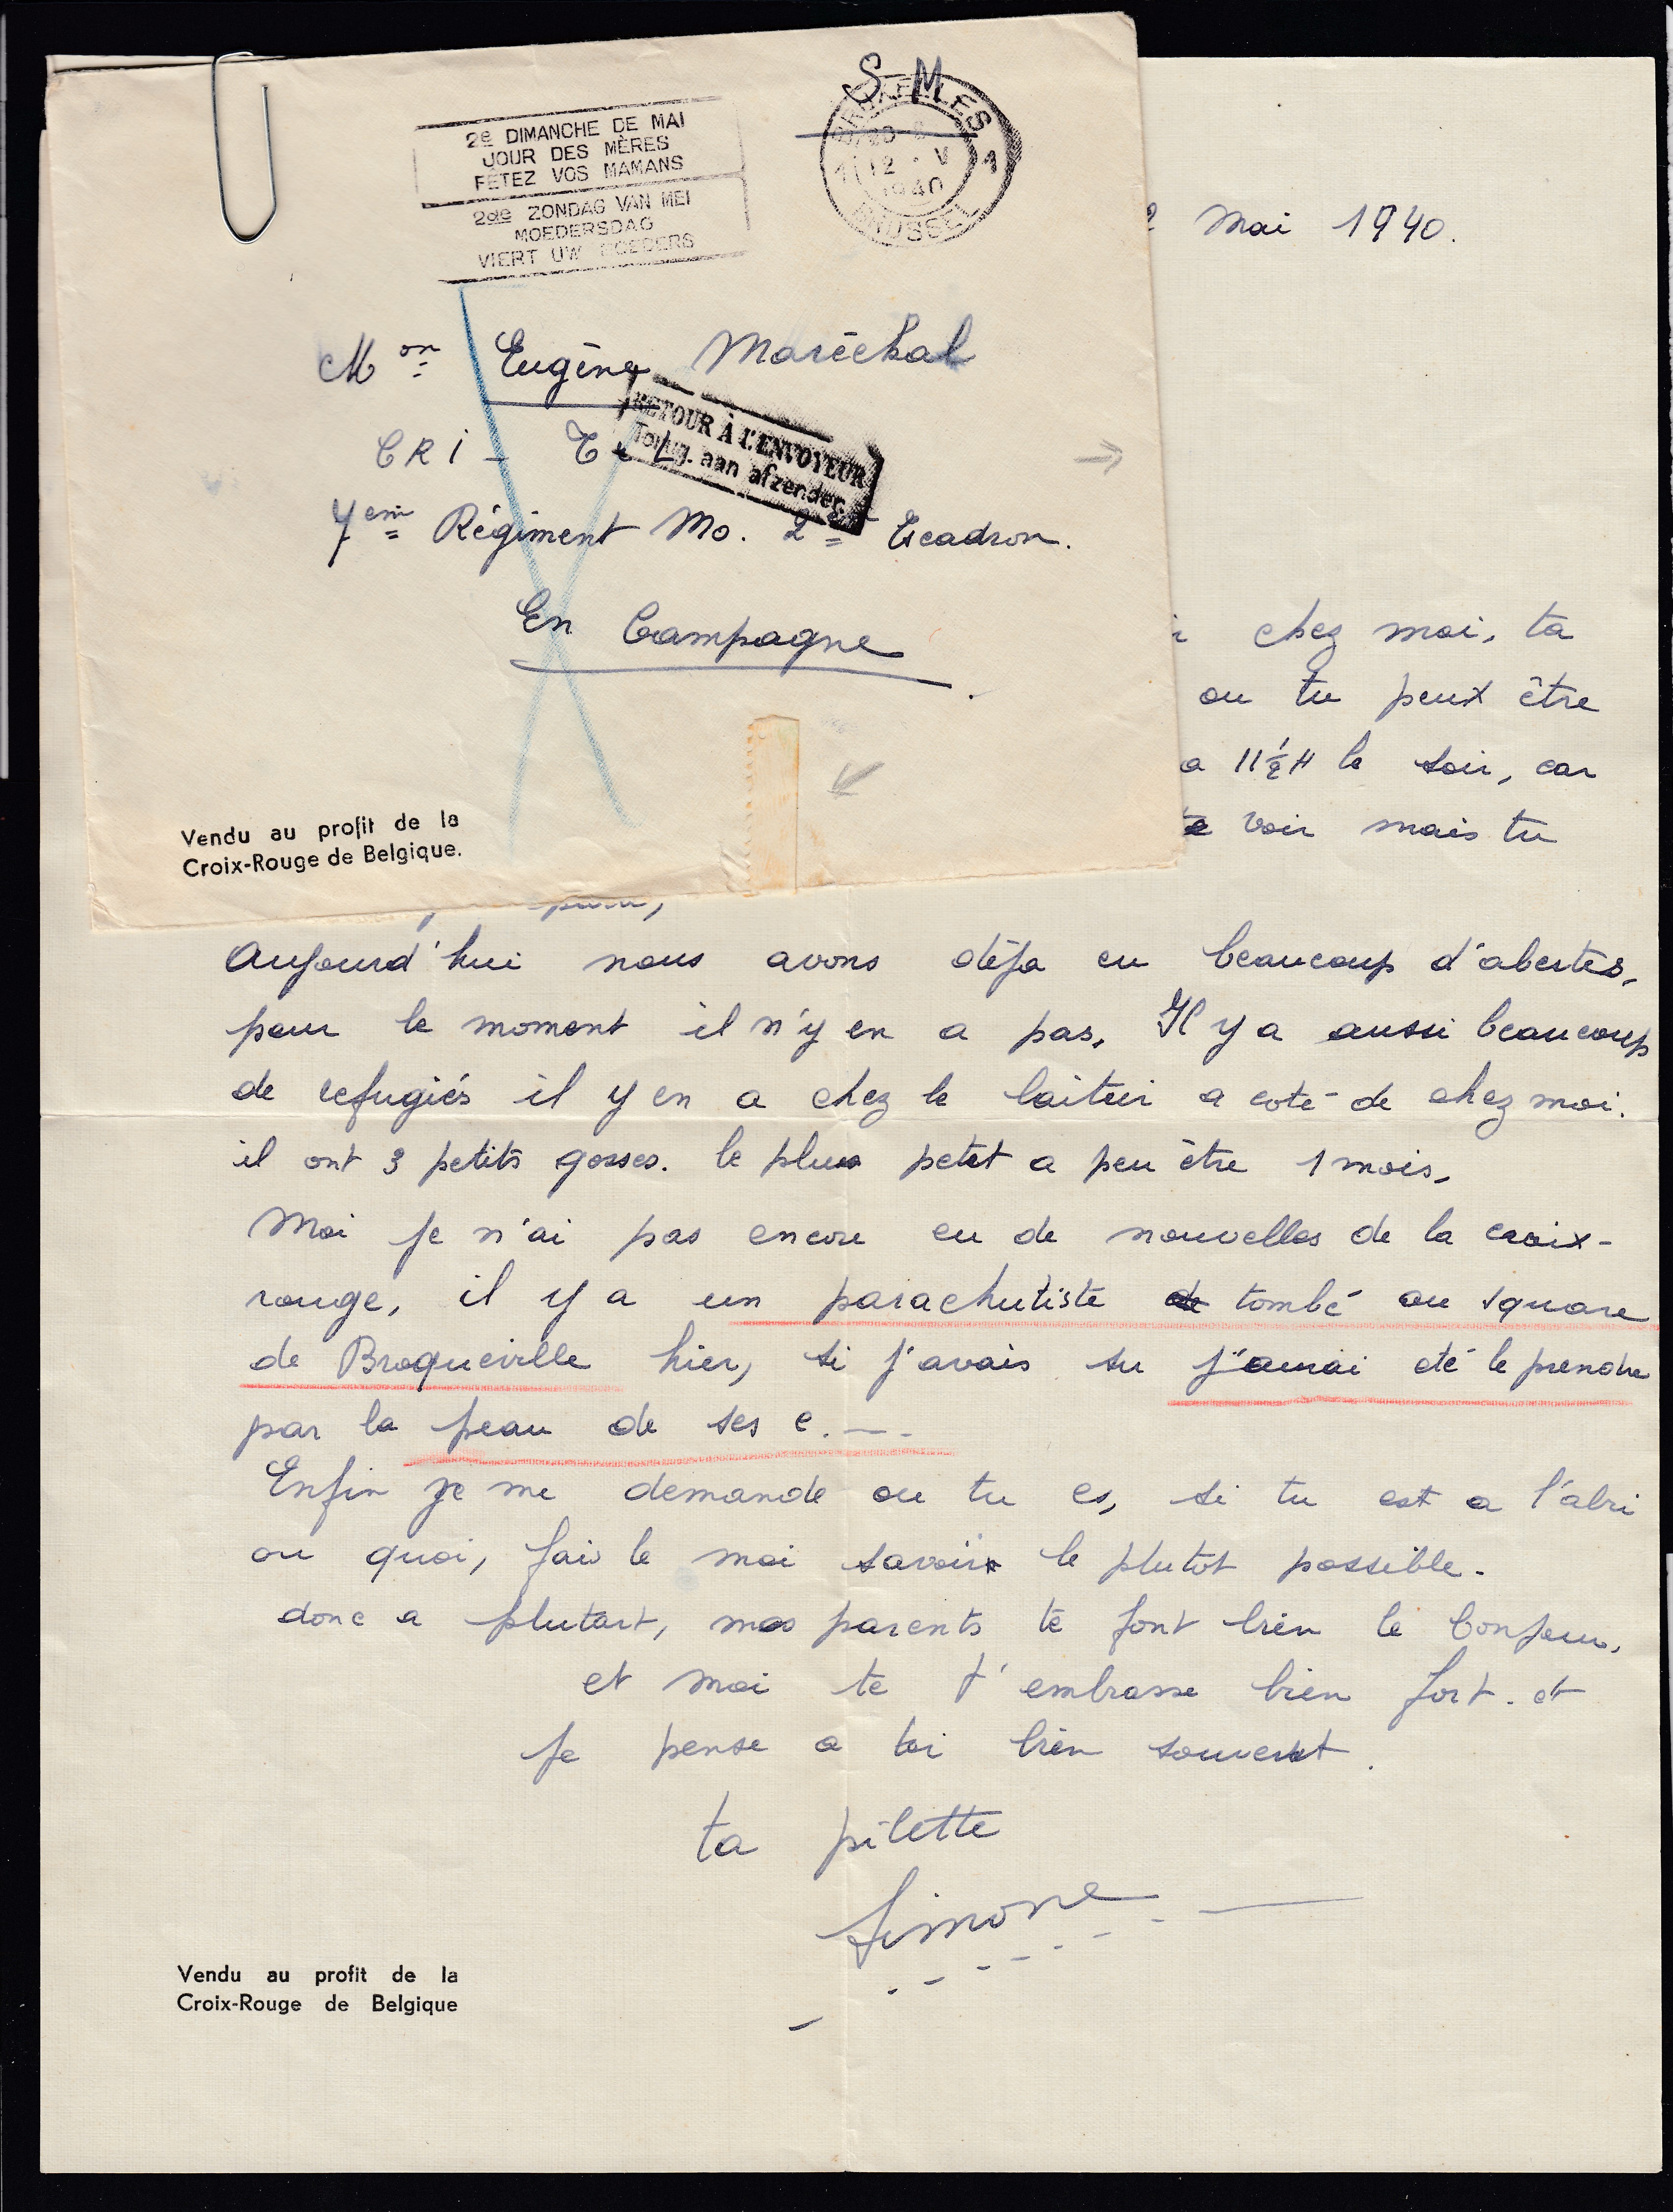 S.M.
BRUXELLES
12 - V
1940
BRUSSEL
1
2e DIMANCHE DE MAI
JOUR DES MÈRES
FÊTEZ VOS MAMANS
2de ZONDAG VAN MEI
MOEDERSDAG
VIERT UW MOEDERS
Mon Eugène Maréchal
RETOUR À L'ENVOYEUR
Terug aan afzender
CRI -
Régiment Mo. 2e Escadron.
En Campagne
Vendu au profit de la
Croix-Rouge de Belgique.
Mai 1940.
chez moi, ta
ou tu peux être
a 11½H le soir, car
te voir mais tu
Aujourd'hui nous avons déja eu beaucoup d'alertes,
pour le moment il n'y en a pas. Il y a aussi beaucoup
de refugiés il y en a chez le laitier a coté de chez moi.
il ont 3 petits gosses. le plus petit a peu être 1 mois.
Moi je n'ai pas encore eu de nouvelles de la croix-
rouge, il y a un parachutiste de tombé au square
de Broqueville hier, si j'avais su j'aurai eté le prendre
par la peau de ses c. --.
Enfin je me demande ou tu es, si tu est a l'abri
ou quoi, fais le moi savoir le plutot possible.
donc a plutart, mes parents te font bien le bonjour,
et moi te t'embrasse bien fort. et
je pense a toi bien souvent.
ta pilette
Simone
Vendu au profit de la
Croix-Rouge de Belgique